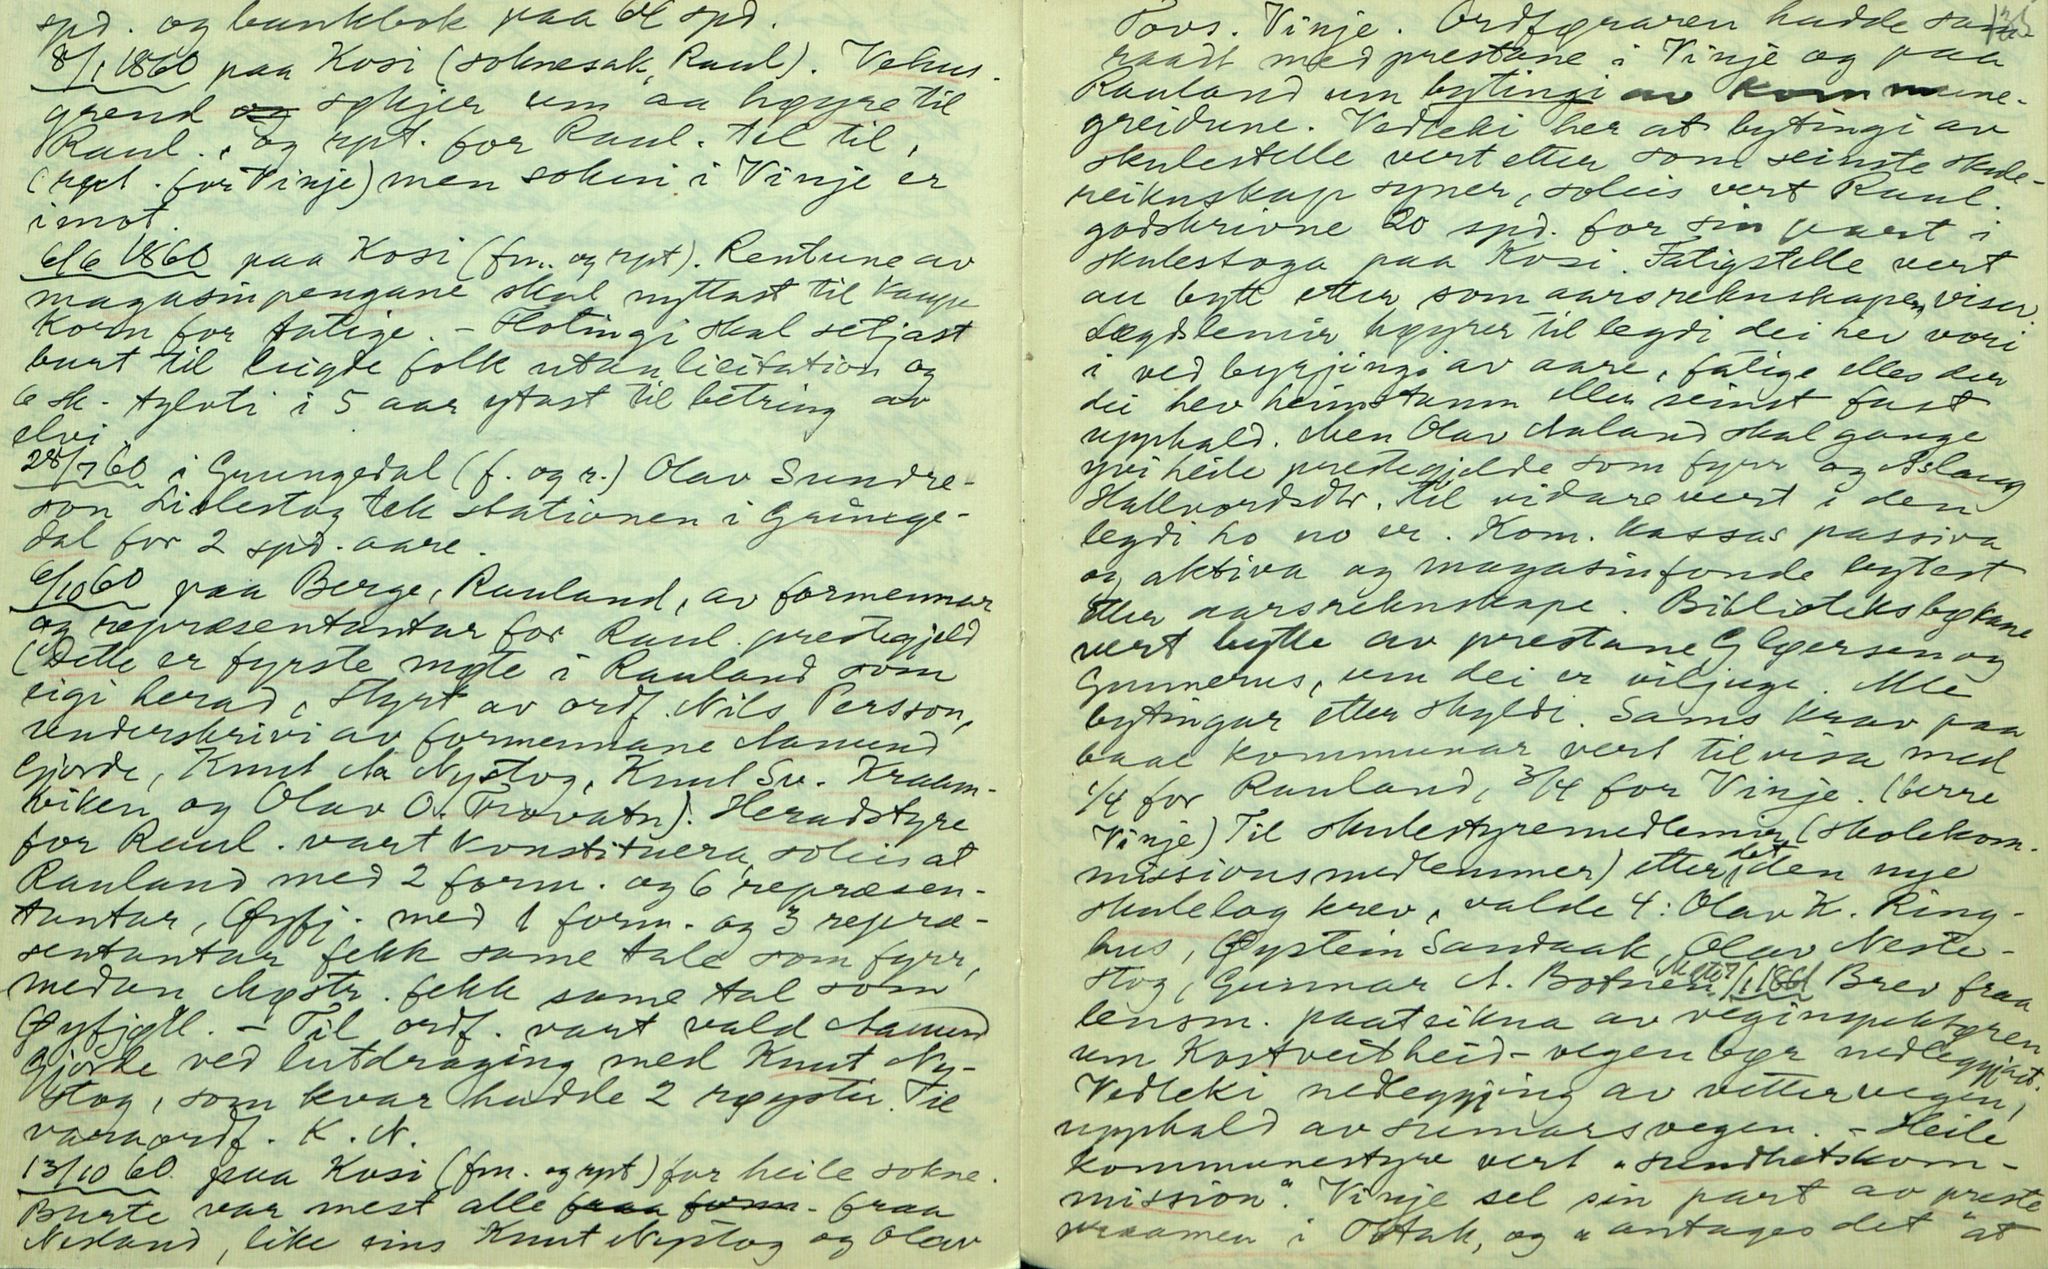 spd. og bankbok paa 61 spd.
8/1 1860 paa Kosi (soknesak, Raul). Vehus-
grend og søkjer um aa høyre til
Raul., og rpt. for Raul. til til,
(rept. for Vinje) men sokni i Vinje er
imot.
6/6 1860 paa Kosi (fm. og rpt). Rentune av
magasinpengane skal nyttast til kaupe
korn for fatige. – Flotingi skal setjast
burt til leigde folk utan licitation og
6 sk. tylvti i 5 aar ytast til betring av
elvi.
28/7 60 i Grungedal (f. og r.) Olav Sundre-
son Lislestog tek stationen i Grunge-
dal for 2 spd. aare.
6/10 60 paa Berge, Rauland, av formennar
og repræsentantar for Raul. prestegjeld
(Dette er fyrste møte i Rauland som
eigi herad, styrt av ordf. Nils Persson,
underskrivi av formennane Aamund
Gjorde, Knut Aa Nystog, Knut Sv. Kraam-
viken og Olav O. Trovatn). Heradstyre
for Raul. vart konstituera, soleis at
Rauland med 2 form. og 6 repræsen-
tantar, Øyfj. med 1 form. og 3 repræ-
sentantar fekk same tale som fyrr,
medan Møstr. fekk same tal som
Øyfjøll. – Til ordf. vart vald Aamund
Gjorde ved lutdraging med Knut Ny-
stog, som kvar hadde 2 røyster. Til
varaordf. K. N.
13/10 60 paa Kosi (fm. og rpt) for heile sokne.
Burte var mest alle fraa form. fraa
Nesland, like eins Knut Nystog og Olav
Tovs. Vinje. Ordføraren hadde sam- 135
raadt med prestane i Vinje og paa
Rauland um bytingi av kommune-
greidune. Vedteki her at bytingi av
skulestelle vert etter som seinste skule-
reiknskap syner, soleis vert Raul.
godskrivne 20 spd. for sin part i
skulestoga paa Kosi. Fatigstelle vert
au bytt etter som aarsreknskapen viser.
Lægdslemir høyrer til legdi dei hev vori
i ved byrjingi av aare, fatige elles der
dei hev heimstamn eller seinst fast
upphald. Men Olav Aaland skal gange
yvi heile prestegjelde som fyrr og Aslaug
Hallvordsdtr. til vidare vert i den
legdi ho no er. Kom. kassas passiva
og aktiva og magasinfonde bytest
etter aarsreknskape. Biblioteksbøkane
vert bytte av prestane Gløersen og
Gunnerus, um dei er viljuge. Alle
bytingar etter skyldi. Sams krav paa
baae kommunar vert tilvisa med
1/4 for Rauland, 3/4 for Vinje. (berre
Vinje) Til skulestyremedlemir (skolekom-
missionsmedlemmer) etter det den nye
skulelog krev, valde 4: Olav K. Ring-
hus, Øystein Sandaak, Olav Neste-
stog, Gunnar A. Botnen. 1/1 1861 Brev fraa
lensm. paateikna av veginspektøren
um Kostveitheid-vegen bør nedleggjast.
Vedteki nedleggjing av vettervegen,
upphald av sumarsvegen. – Heile
kommunestyre vert "sundhetskom-
mission". Vinje sel sin part av preste
vraamen i Øtak, og "antages det" at